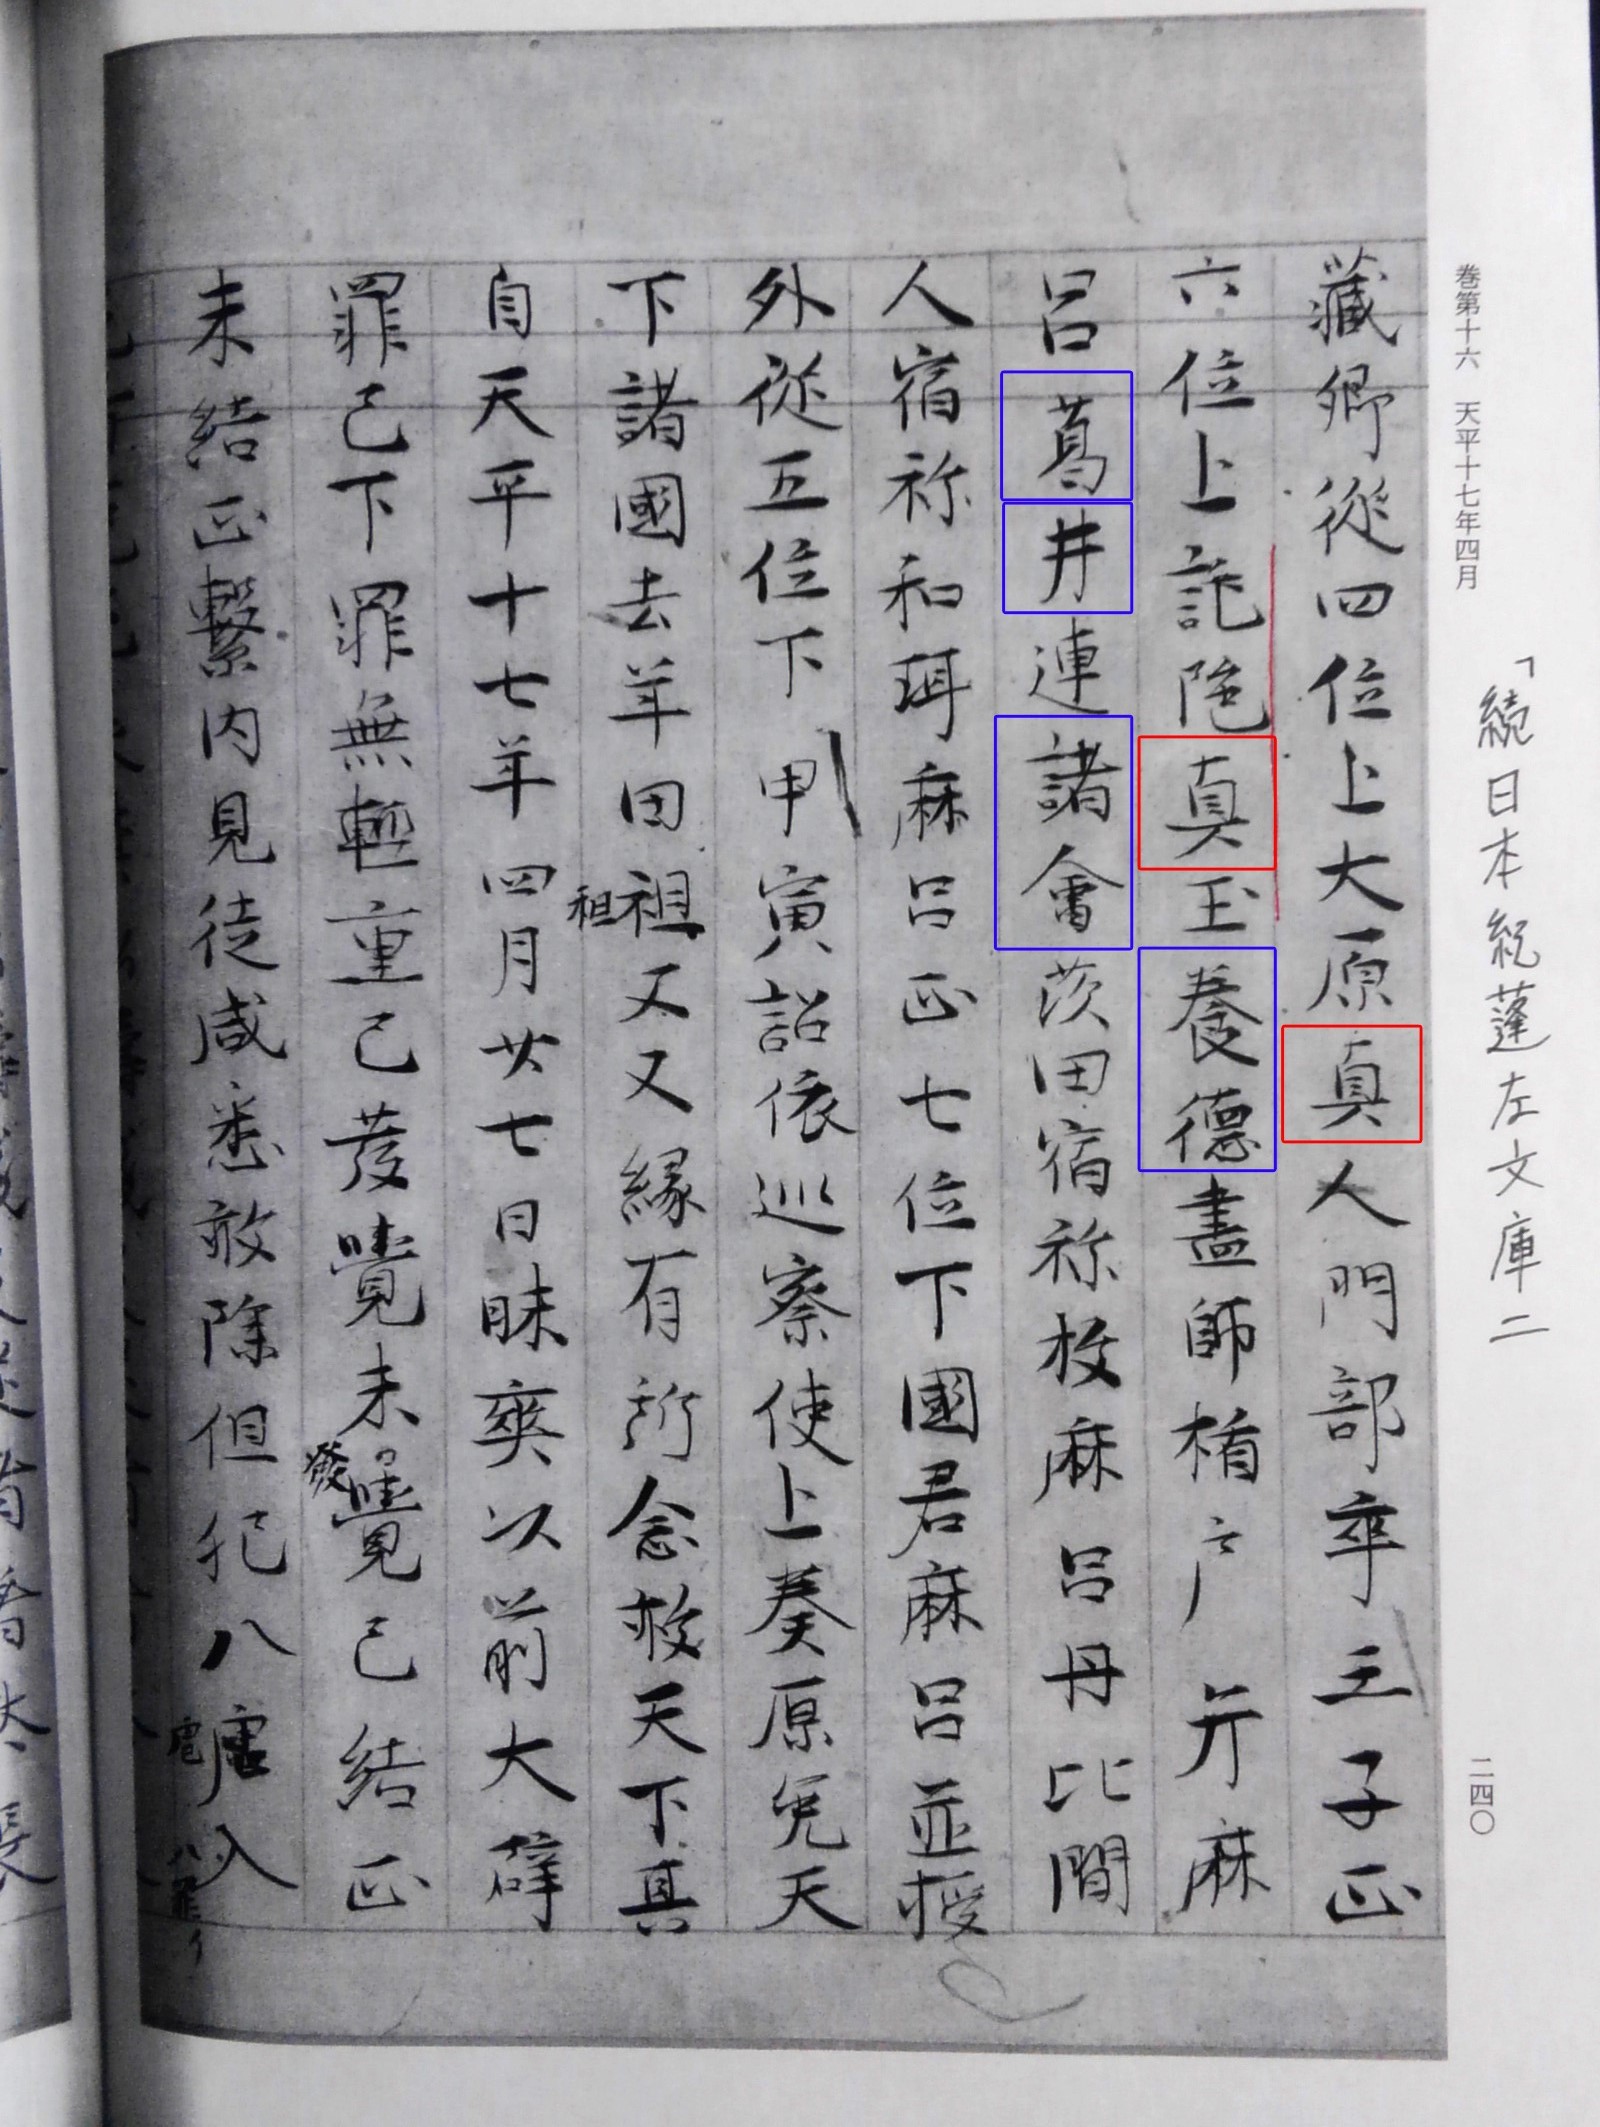 巻第十六 天平十七年四月
「続日本紀蓬左文庫二
二四〇
藏卿從四位上大原真人門部卒壬子正
六位上託陁真玉養德畫師楯戸弁麻
呂葛井連諸會茨田宿祢枚麻呂丹比間
人宿祢和珥麻呂正七位下國君麻呂並授
外從五位下甲寅詔依巡察使上奏原免天
下諸國去年田祖又又縁有所念救天下真
租
自天平十七年四月廿七日昧爽以前大辟
罪已下罪無輕重已發覺未覺已結正
發
未結正繫內見徒咸悉赦除但犯八虐入